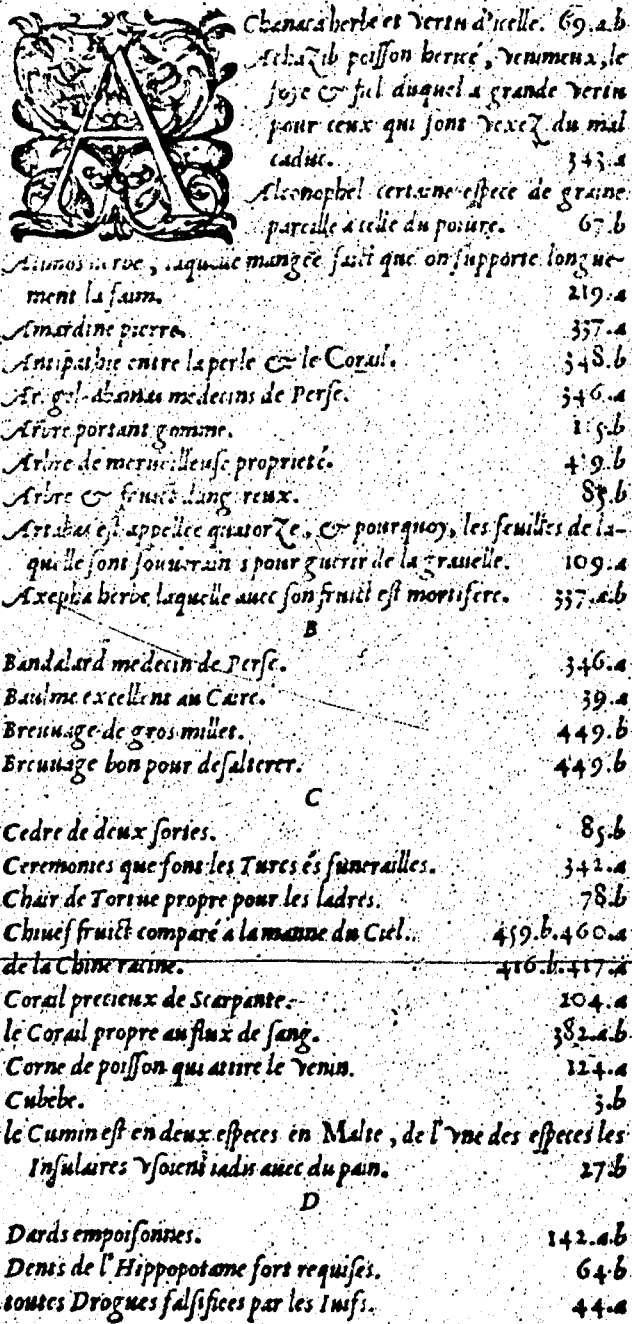 AChanaca herbe et vertu d'icelle. 69.a.b
Achazib poisson hericé, venimeux, le
foye & fiel duquel a grande vertu
pour ceux qui sont vexez du mal
caduc. 343.a
Alconophel certaine espece de graine
pareille à celle du poiure. 67.b
Alimos herbe, laquelle mangée faict que on supporte longue-
ment la faim. 219.a
Amardine pierre. 337.a
Antipathie entre la perle & le Corail. 348.b
medecins de Perse. 346.a
Arbre portant gomme. 115.b
Arbre de merueilleuse proprieté. 419.b
Arbre & fruict dangereux. 85.b
Artabas est appellee quatorze, & pourquoy, les feuilles de la-
quelle sont souuerain s pour guerir de la grauelle. 109.a
Axepha herbe laquelle auec son fruict est mortifere. 337.a.b
B
Bandalard medecin de Perse. 346.a
Baulme excellent au Caire. 39.a
Breuuage de gros millet. 449.b
Breuuage bon pour desalterer. 449.b
C
Cedre de deux sortes. 85.b
Ceremonies que font les Turcs és funerailles. 342.a
Chair de Tortue propre pour les ladres. 78.b
Chiues fruict comparé a la manne du Ciel. 459.b.460.a
de la Chine racine. 416.b.417.a
Corail precieux de Scarpante. 104.a
le Corail propre au flux de sang. 382.a.b
Corne de poisson qui attire le venin. 124.a
Cubebe. 3.b
le Cumin est en deux especes en Malte, de l'vne des especes les
Insulaires vsoient iadis auec du pain. 27.b
D
Dards empoisonnes. 142.a.b
Dents de l'Hippopotame fort requises. 64.b
toutes Drogues falsifiees par les Iuifs. 44.a